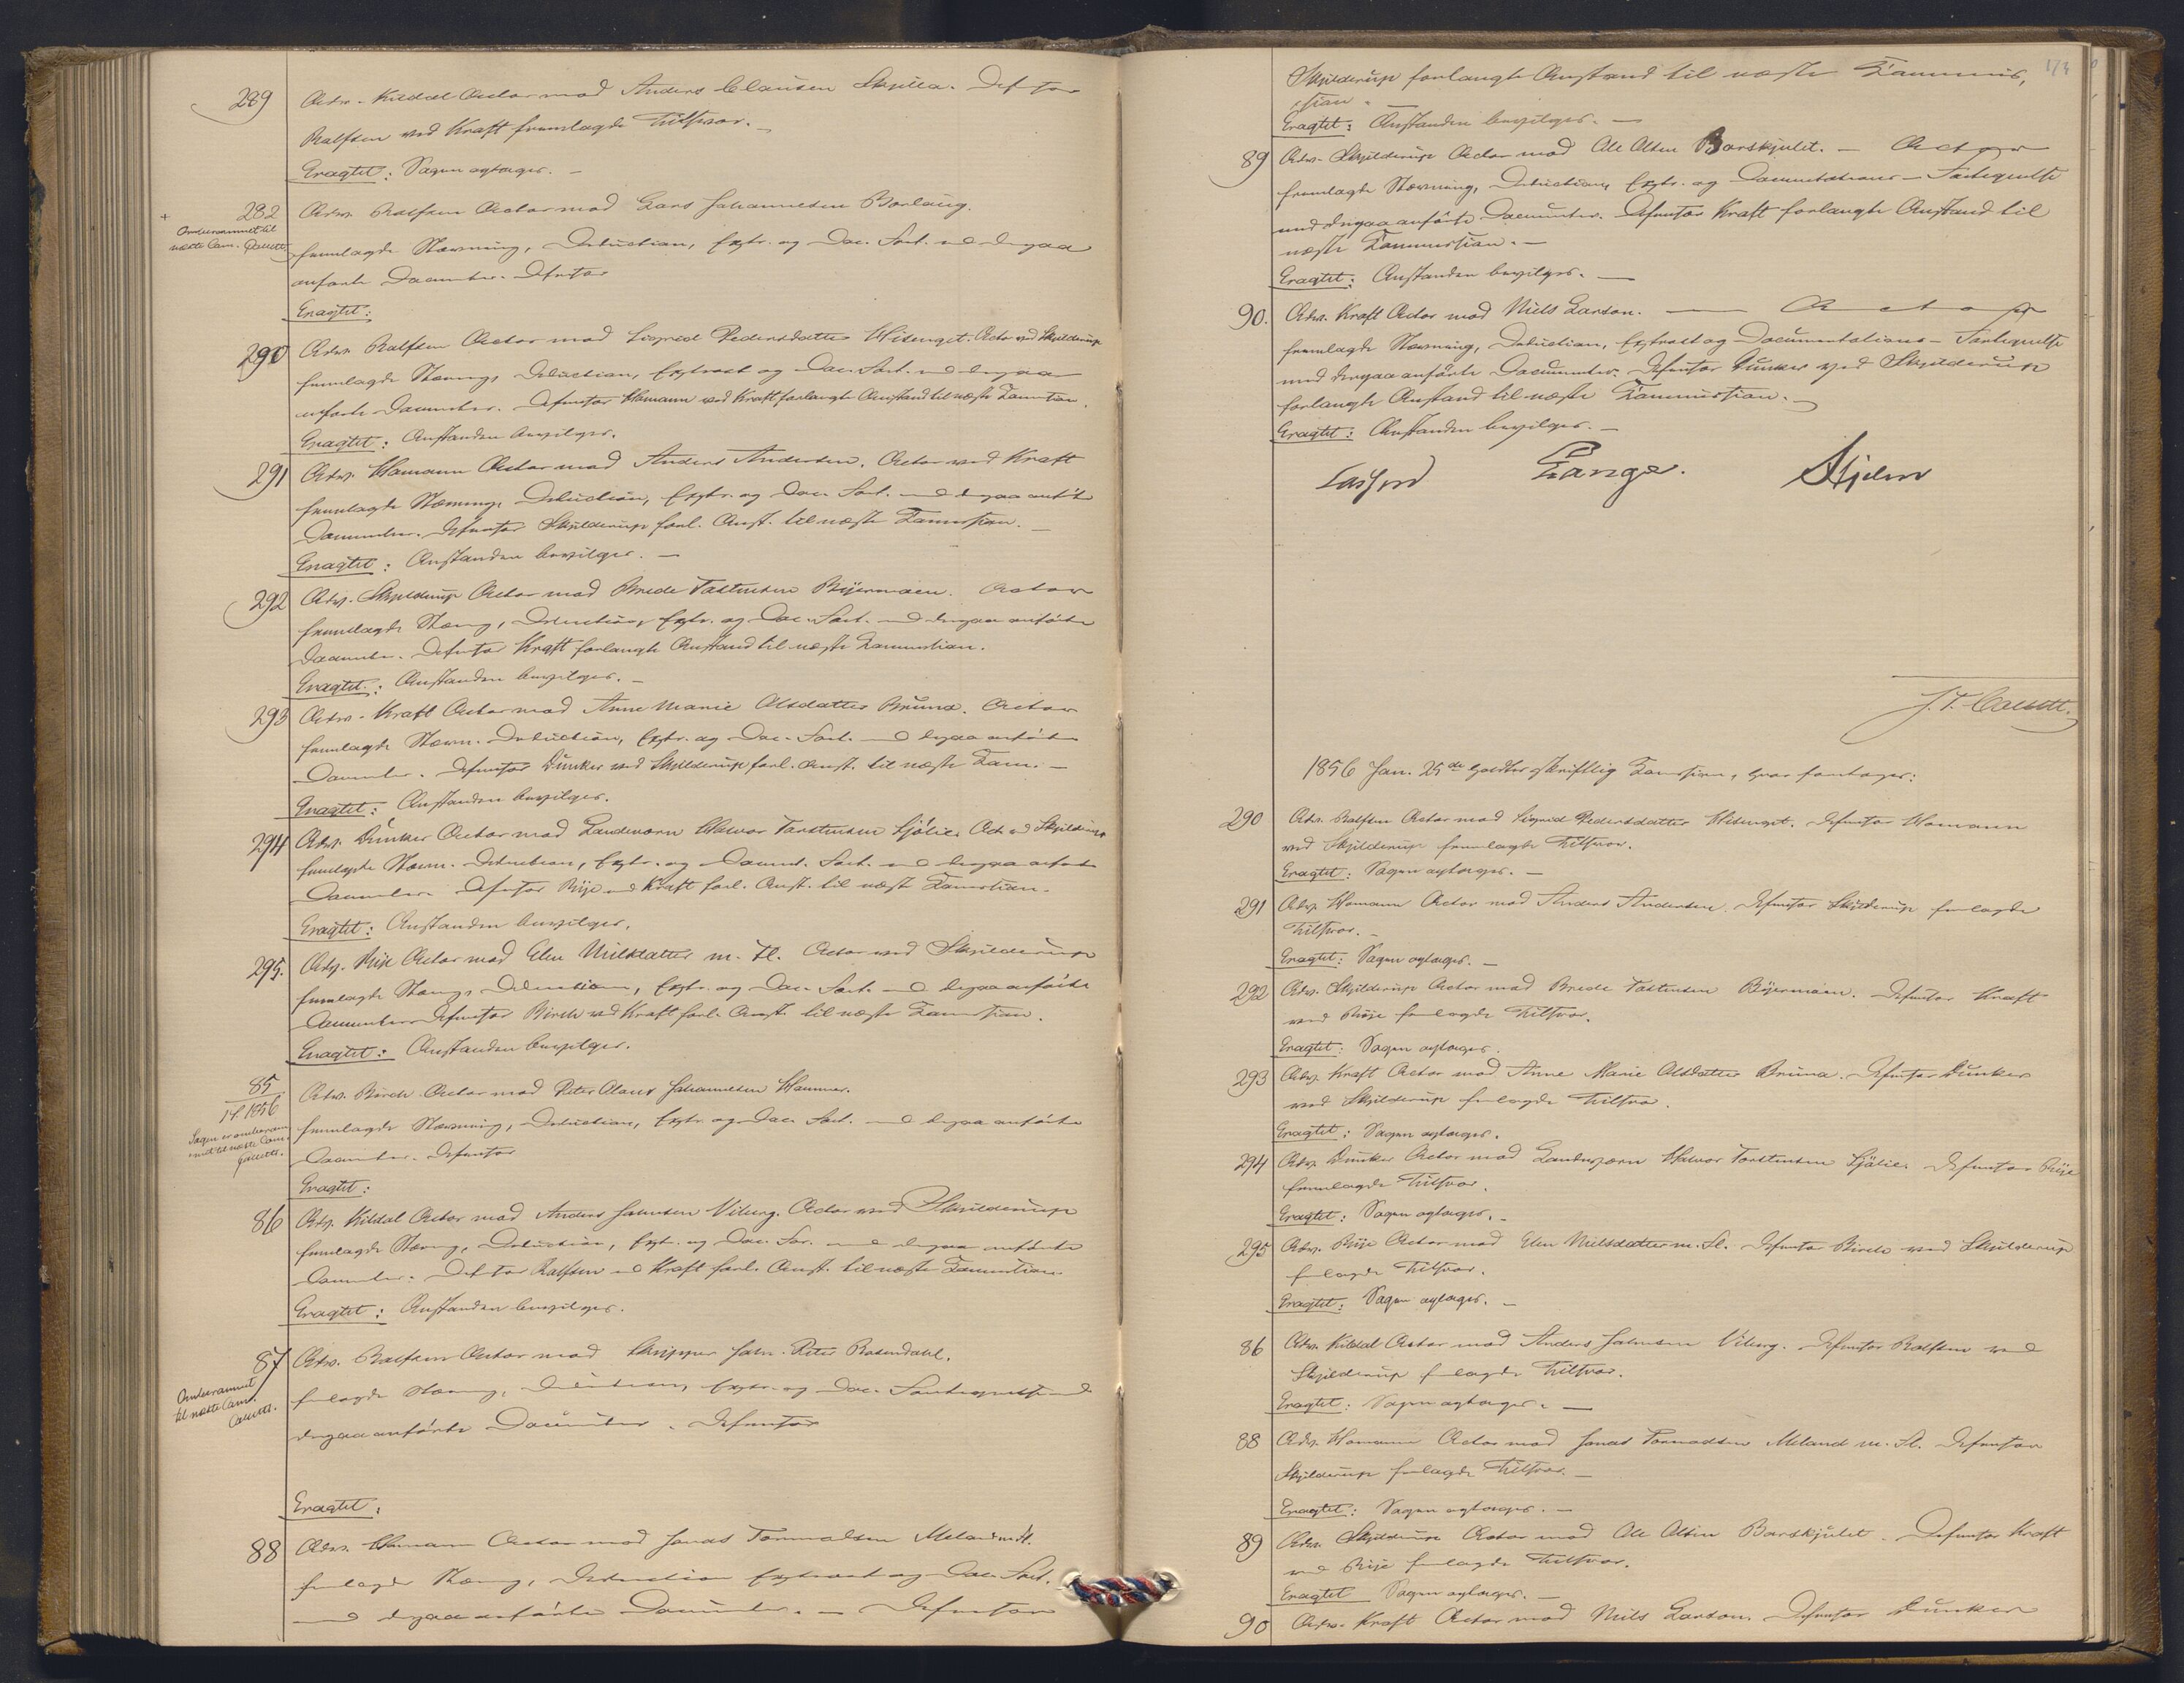 289 Adv. Kildal Actor mod Anders Clausen Skylla. Defensor
Rolfsen ved Kraft fremlagde Tilsvar. –
Eragtet: Sagen optages. –
+ 282 Adv. Rolfsen Actor mod Lars Johannesen Borlaug.
Omberammet til
næste Com. Collett
fremlagde Stævning, Deduction, Extr. og Doc. Fort. med derpaa
anførte Documenter. Defensor
Eragtet:
290 Adv. Rolfsen Actor mod Sigrid Pedersdatter Hisenget. Actor ved Skjelderup
fremlagde Stævning, Deduction, Extract og Doc. Fort. med derpaa
anførte Documenter. Defensor Homann ved Kraft forlangte Anstand til næste Commission.
Eragtet: Anstanden bevilges.
291 Adv. Homann Actor mod Anders Andersen. Actor ved Kraft
fremlagde Stævning, Deduction, Extr. og Doc. Fort. med derpaa anførte
Documenter. Defensor Skjelderup forl. Anst. til næste Commission. –
Eragtet: Anstanden bevilges. –
292 Adv. Skjelderup Actor mod Brede Tostensen Bijermoen. Actor
fremlagde Stævning, Deduction, Extr. og Doc. Fort. med derpaa anførte
Documenter. Defensor Kraft forlangte Anstand til næste Commission.
Eragtet: Anstanden bevilges. –
293 Adv. Kraft Actor mod Anne Marie Olsdatter Bruna. Actor
fremlagde Stævn. Deduction, Extr. og Doc. Fort. med derpaa anførte
Documenter. Defensor Dunker ved Skjelderup forl. Anst. til næste Com. –
Eragtet: Anstanden bevilges.
294 Adv. Dunker Actor mod Landeværn Halvor Torstensen Sjölie. Act. ved Skjelderup
fremlagde Stævn. Deduction, Extr. og Docum. Fort. med derpaa anførte
Documenter. Defensor Rije ved Kraft forl. Anst. til næste Commission.
Eragtet: Anstanden bevilges.
295. Adv. Rije Actor mod Elen Nilsdatter m. Fl. Actor ved Skjelderup
fremlagde Stævning, Deduction, Extr. og Doc. Fort. med derpaa anførte
Documenter. Defensor Birch ved Kraft forl. Anst. til næste Commission.
Eragtet: Anstanden bevilges.
85 Adv. Birch Actor mod Peter Olaus Johannesen Hammer.
1856
Sagen er omberam-
met til næste Com.
Collett.
fremlagde Stævning, Deduction, Extr. og Doc. Fort. med derpaa anførte
Documenter. Defensor
Eragtet:
86 Adv. Kildal Actor mod Anders Johnsen Viburg. Actor ved Skjelderup
fremlagde Stævning, Deduction, Extr. og Doc. For. med derpaa anførte
Documenter. Defensor Rolfsen ved Kraft forl. Anst. til næste Commission
Eragtet: Anstanden bevilges.
87 Adv. Rolfsen Actor mod Skipper Joh. Peter Rosendahl.
Omberammet
til næste Com.
Collett.
fremlagde Stævning, Deduction, Extr. og Doc. Fortegnelse med
derpaa anførte Documenter. Defensor
Eragtet:
88 Adv. Homann Actor mod Jonas Tormodsen Meland m. Fl.
fremlagde Stævning, Deduction Extract og Doc. Fort.
med derpaa anførte Documenter. – Defensor
Skjelderup forlangte Anstand til næste Commis,
sion.
Eragtet: Anstanden bevilges. –
89 Adv. Skjelderup Actor mod Ole Olsen Borskjulet. – Actor
fremlagde Stævning, Deduction, Extr. og Documentations-Fortegnelse
med derpaa anførte Documenter. Defensor Kraft forlangte Anstand til
næste Commission. –
Eragtet: Anstanden bevilges. –
90. Adv. Kraft Actor mod Niels Larson. – Actor
fremlagde Stævning, Deduction, Extract og Documentations-Fortegnelse
med derpaa anførte Documenter. Defensor Dunker ved Skjelderup
forlangte Anstand til næste Commission. –
Eragtet: Anstanden bevilges. –
Lange.
J. T. Collett.
1856 Jan. 25de holdtes skriftlig Commission, hvor foretoges:
290 Adv. Rolfsen Actor mod Sigrid Pedersdatter Hisenget. Defensor Homann
ved Skjelderup fremlagde Tilsvar.
Eragtet: Sagen optages. –
291 Adv. Homann Actor mod Anders Andersen. Defensor Skjelderup fremlagde
Tilsvar. –
Eragtet: Sagen optages. –
292 Adv. Skjelderup Actor mod Brede Tostensen Bijermoen. Defensor Kraft
ved Rije fremlagde Tilsvar.
Eragtet: Sagen optages.
293 Adv. Kraft Actor mod Anne Marie Olsdatter Bruna. Defensor Dunker
ved Skjelderup fremlagde Tilsvar.
Eragtet: Sagen optages.
294 Adv. Dunker Actor mod Landeværn Halvor Torstensen Sjölie. Defensor Rije
fremlagde Tilsvar.
Eragtet: Sagen optages. –
295 Adv. Rije Actor mod Elen Nilsdatter m. Fl. Defensor Birch ved Skjelderup
fremlagde Tilsvar.
Eragtet: Sagen optages. –
86 Adv. Kildal Actor mod Anders Johnsen Viburg. Defensor Rolfsen ved
Skjelderup fremlagde Tilsvar.
Eragtet: Sagen optages. –
88 Adv. Homann Actor mod Jonas Tormodsen Meland m. Fl. Defensor
Skjelderup fremlagde Tilsvar. –
Eragtet: Sagen optages. –
89 Adv. Skjelderup Actor mod Ole Olsen Borskjulet. Defensor Kraft
ved Rije fremlagde Tilsvar.
Eragtet Sagen optages. –
90 Adv. Kraft Actor mod Niels Larson. Defensor Dunker